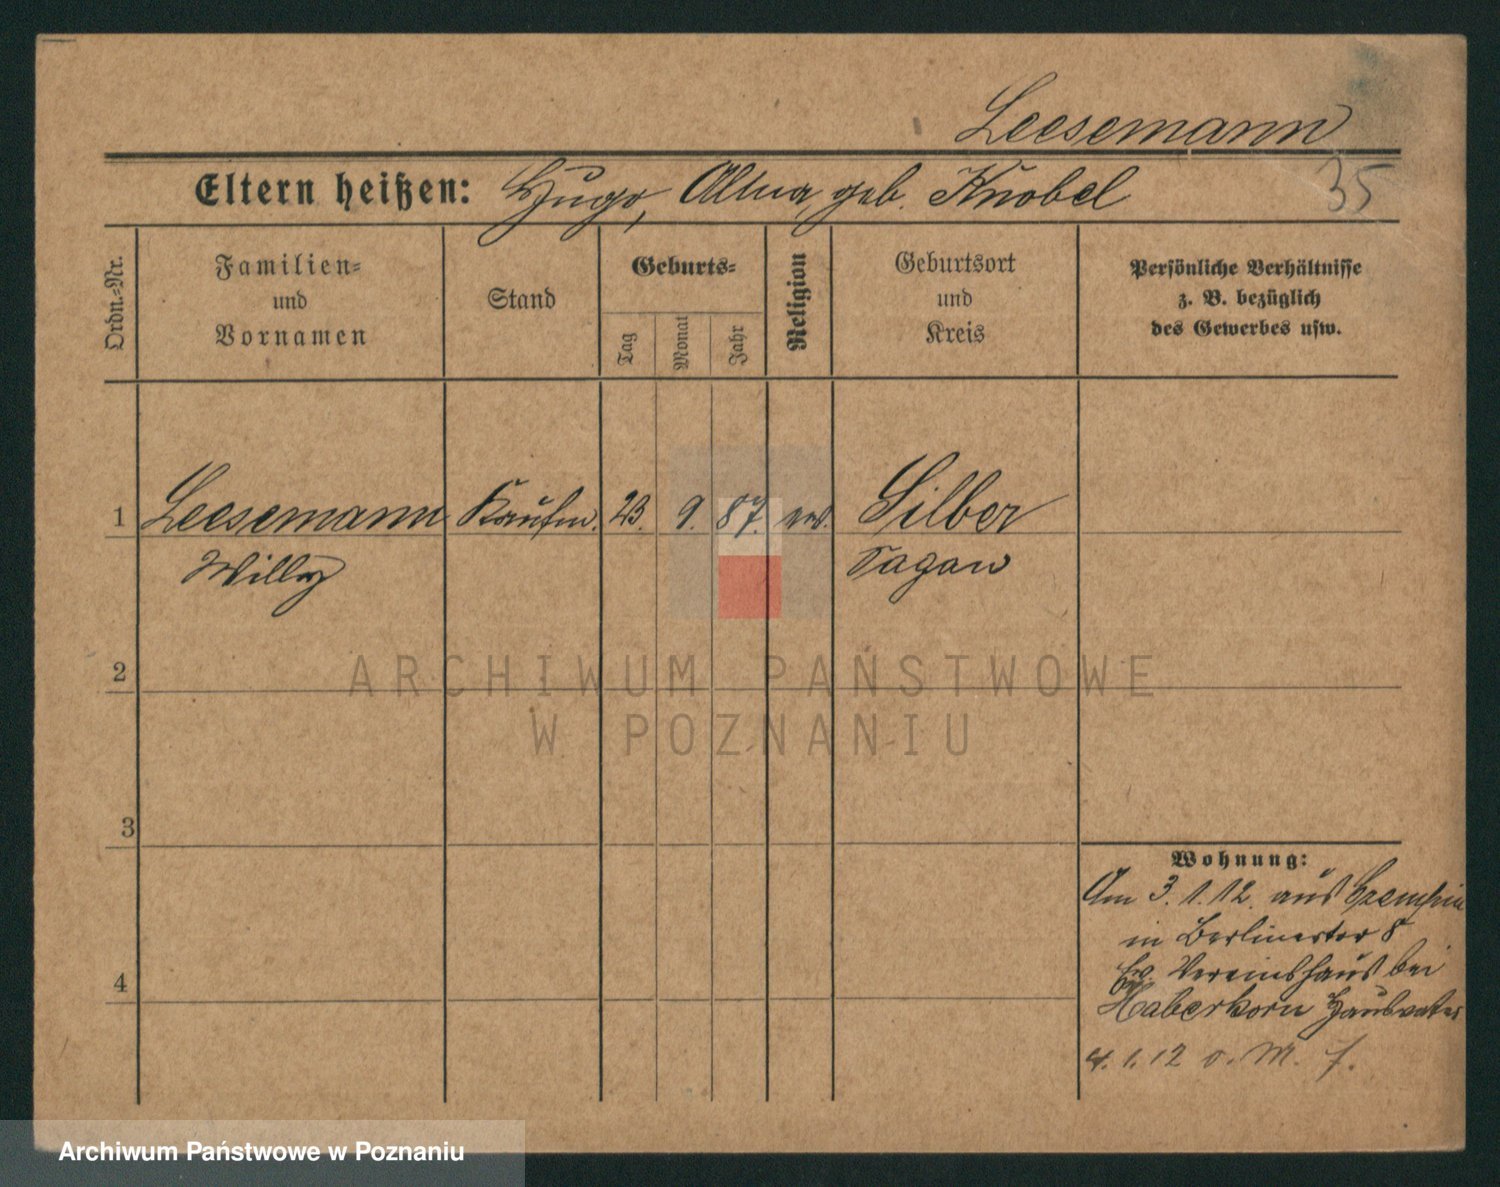 Leesemann
35
Eltern heißen: Hugo, Alma, geb. Knobel
Ordn.-Nr.
Familien-
und
Vornamen
Stand
Geburts-
Tag
Monat
Jahr
Religion
Geburtsort
und
Kreis
Persönliche Verhältnisse
z. B. bezüglich
des Gewerbes usw.
1 Leesemann Kaufm. 23. 9. 87. ev. Silber
Willy Sagan
2
3
4
Wohnung:
Am 3.1.12. aus
in Berlinertor 8
Ev. Vereinshaus bei
Haberkorn Hausvater
4.1.12 o. M. f.
ARCHIWUM PAŃSTWOWE
W POZNANIU
Archiwum Państwowe w Poznaniu